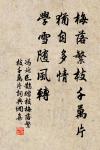 梅落繁枝千萬片
猶自多情
學雪隨風轉
馮延巳鵲踏枝梅落繁
枝千萬片詞典網集